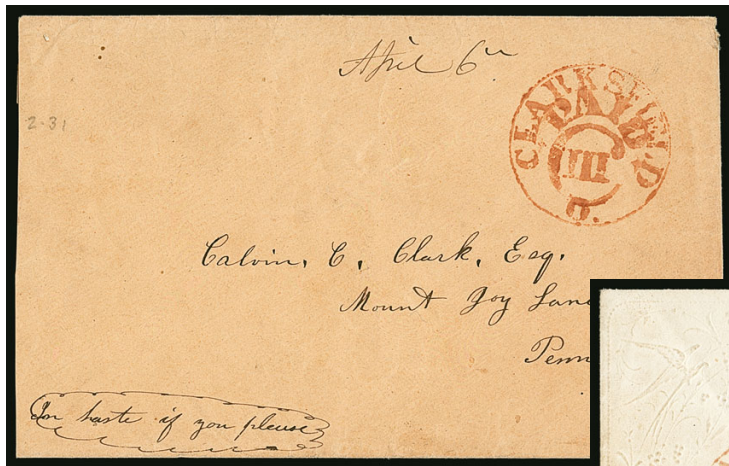 April 6th
CLARKSFIELD
PAID
III
O.
2-31
Calvin. C. Clark, Esq.
Mount Joy Lan
Penn
In haste if you please